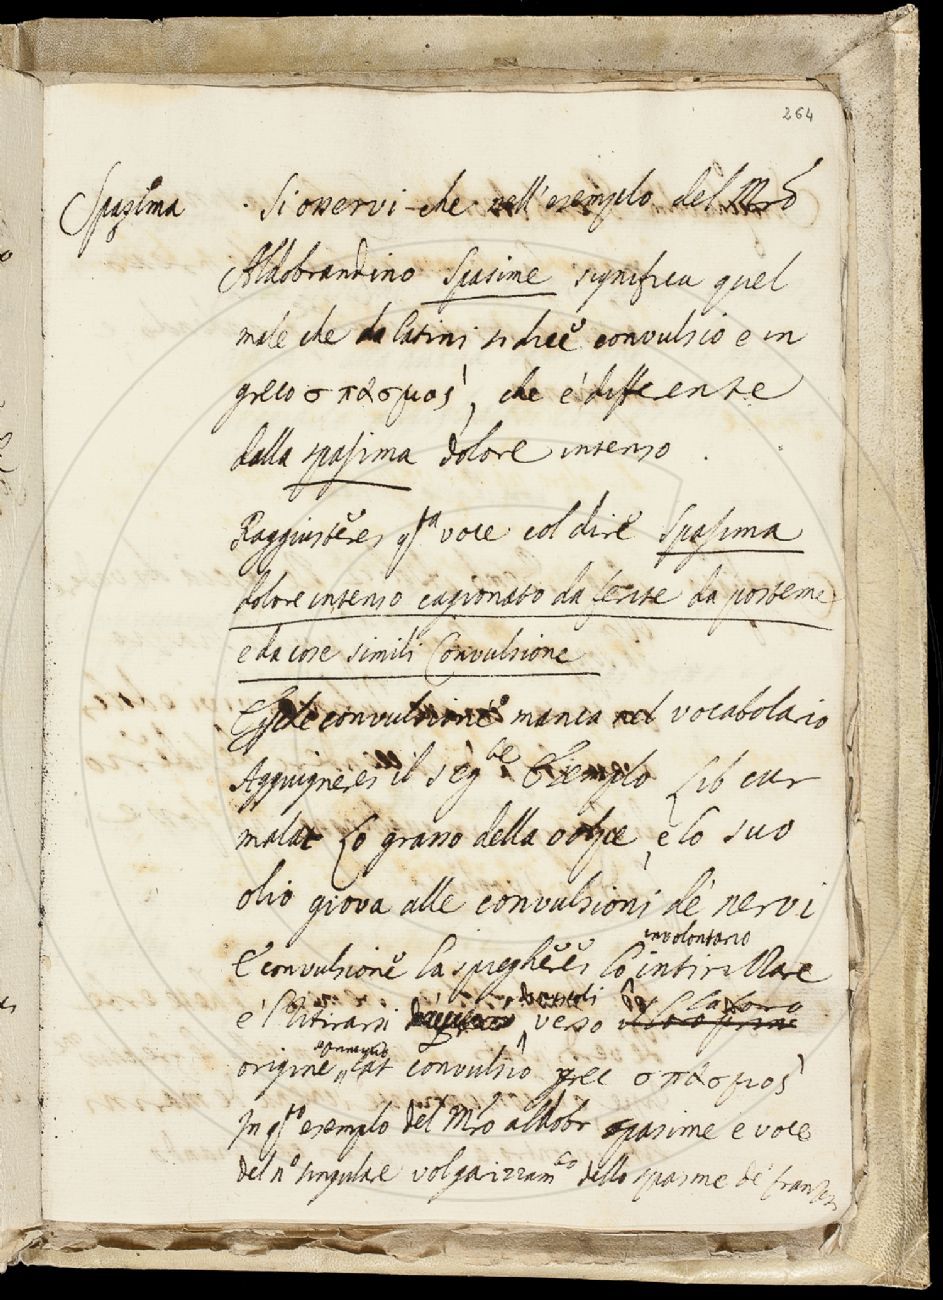 264
Spasima Si osservi che nell'esemplo del Mrõ
Aldobrandino Spasime significa quel
male che da latini si dice convulsio e in
greco σπασμος, che è differente
dalla spasima dolore intenso
Raggiusterei qta voce col dire Spasima
dolore intenso cagionato da ferite da posteme
e da cose simili Convulsione
convulsione manca nel vocabolario
Aggiugnerei il segte Esemplo Lib cur
malat Lo grasso della volpe, e lo suo
olio giova alle convulsioni de nervi
involontario
E convulsione la spiegherei lo intirizzare
e 'l ritirarsi verso la loro
origine lat convulsio grec σπασμος
In qto esemplo del Mro aldobr spasime e voce
del no singulare volgarizzamto dello spasme de franzesi